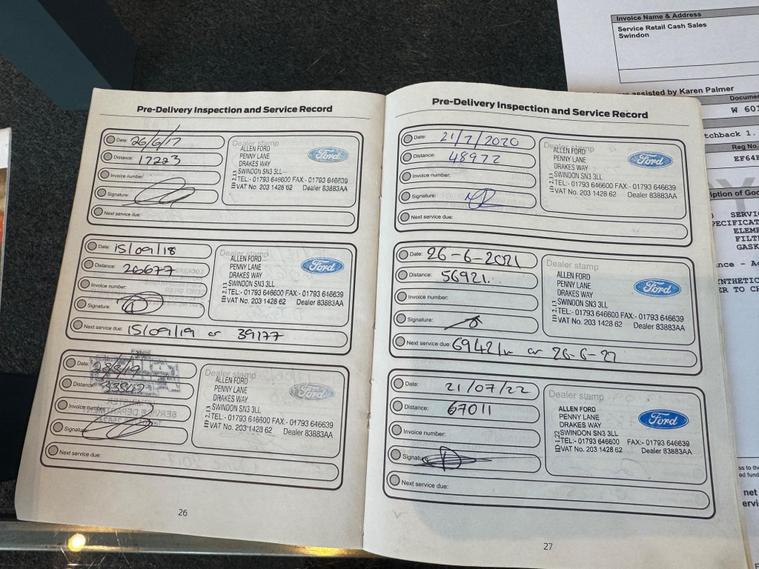 Pre-Delivery Inspection and Service Record
Date: 26/6/17
Distance: 17223
Invoice number:
Signature:
Next service due:
Dealer stamp
ALLEN FORD
PENNY LANE
DRAKES WAY
SWINDON SN3 3LL
TEL:- 01793 646600 FAX:- 01793 646639
VAT No. 203 1428 62 Dealer 83883AA
Ford
Date: 15/09/18
Distance: 26677
Invoice number:
Signature:
Next service due: 15/09/19 or 39177
Dealer stamp
ALLEN FORD
PENNY LANE
DRAKES WAY
SWINDON SN3 3LL
TEL:- 01793 646600 FAX:- 01793 646639
VAT No. 203 1428 62 Dealer 83883AA
Ford
Date:
Distance:
Invoice number:
Signature:
Next service due:
Dealer stamp
ALLEN FORD
PENNY LANE
DRAKES WAY
SWINDON SN3 3LL
TEL:- 01793 646600 FAX:- 01793 646639
VAT No. 203 1428 62 Dealer 83883AA
Ford
26
Pre-Delivery Inspection and Service Record
Date: 21/7/2020
Distance: 48972
Invoice number:
Signature:
Next service due:
Dealer stamp
ALLEN FORD
PENNY LANE
DRAKES WAY
SWINDON SN3 3LL
TEL:- 01793 646600 FAX:- 01793 646639
VAT No. 203 1428 62 Dealer 83883AA
Ford
Date: 26-6-2021
Distance: 56921.
Invoice number:
Signature:
Next service due: 69421m or 26-6-22
Dealer stamp
ALLEN FORD
PENNY LANE
DRAKES WAY
SWINDON SN3 3LL
TEL:- 01793 646600 FAX:- 01793 646639
VAT No. 203 1428 62 Dealer 83883AA
Ford
Date: 21/07/22
Distance: 67011
Invoice number:
Signature:
Next service due:
Dealer stamp
ALLEN FORD
PENNY LANE
DRAKES WAY
SWINDON SN3 3LL
TEL:- 01793 646600 FAX:- 01793 646639
VAT No. 203 1428 62 Dealer 83883AA
Ford
27
Invoice Name & Address
Service Retail Cash Sales
Swindon
assisted by Karen Palmer
Docume
W 601
tchback 1.
Reg No.
EF64
iption of Goo
SERVIC
PECIFICAT
ELEM
FILT
GASK
nce - A
YNTHETIC
ER TO CH